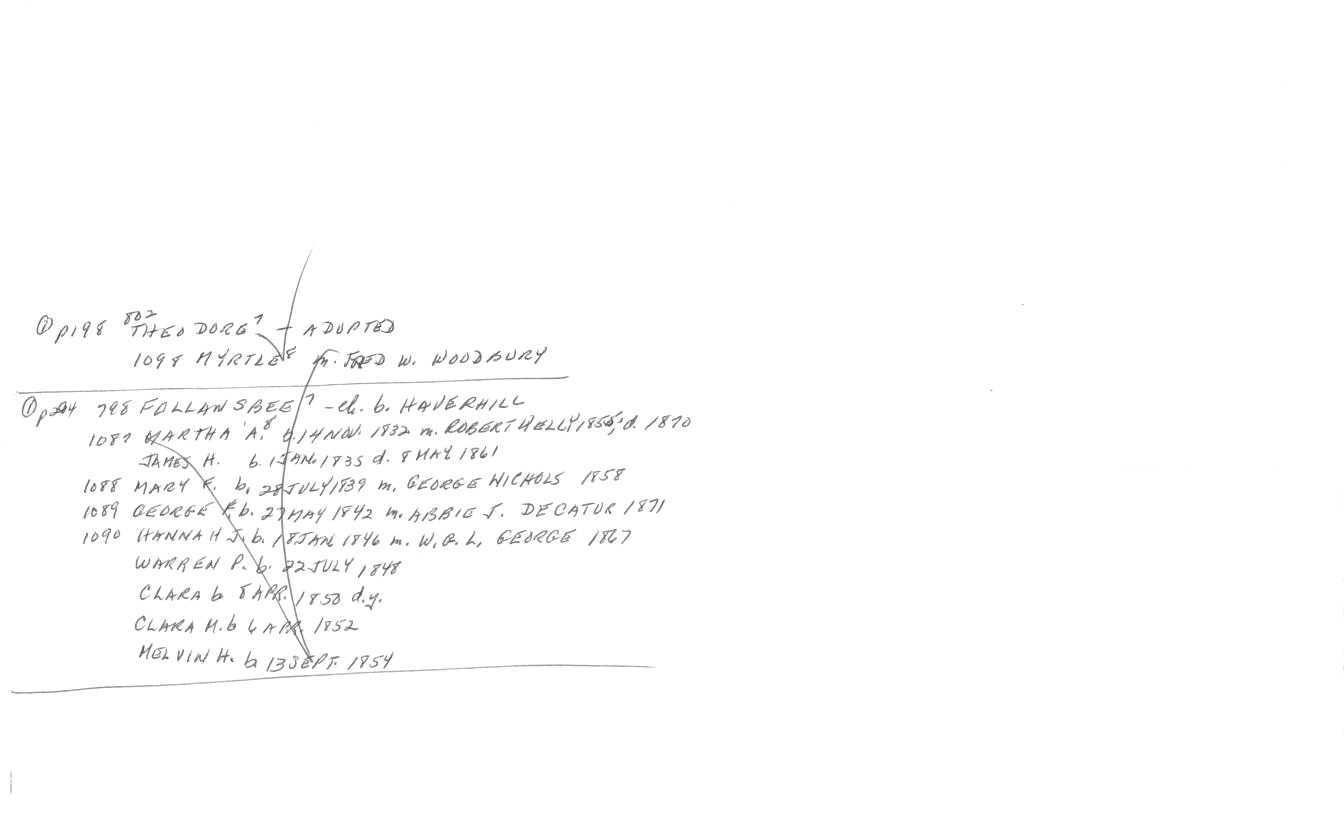 ① p198 802 THEODORE⁷ — ADOPTED
1098 MYRTLE⁸ m. FRED W. WOODBURY
① 798 FOLLANSBEE⁷ – ch. b. HAVERHILL
1087 MARTHA A.⁸ b. 14 NOV. 1832 m. ROBERT 1855, d. 1870
JAMES H. b. 1 JAN. 1835 d. 8 MAY 1861
1088 MARY F. b. 28 JULY 1839 m. GEORGE NICHOLS 1858
1089 GEORGE F. b. 27 MAY 1842 m. ABBIE J. DECATUR 1871
1090 HANNAH J. b. 18 JAN 1846 m. W. G. L. GEORGE 1867
WARREN P. b. 22 JULY 1848
CLARA b 8 APR. 1850 d.y.
CLARA M. b 6 APR. 1852
MELVIN H. b 13 SEPT. 1854